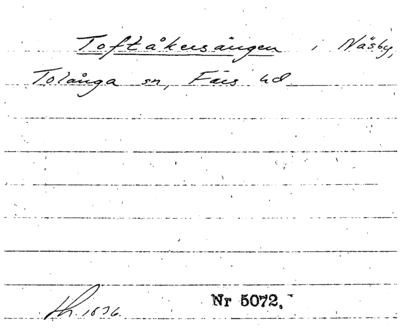 Toftåkersängen i Näsby,
Tolånga sn, Färs hd
Nr 5072.